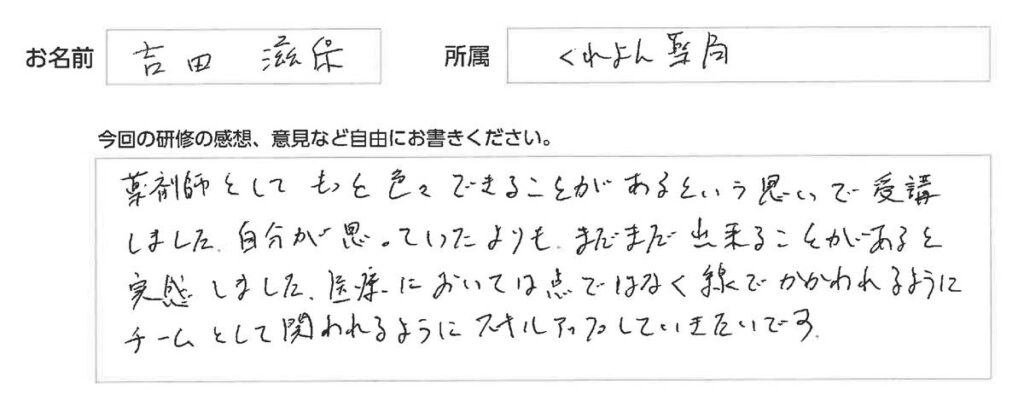 お名前 吉田 滋保 所属 くれよん薬局
今回の研修の感想、意見など自由にお書きください。
薬剤師としてもっと色々できることがあるという思いで受講
しました。自分が思っていたよりも、まだまだ出来ることがあると
実感しました。医療においては点ではなく線でかかわれるように
チームとして関われるようにスキルアップしていきたいです。